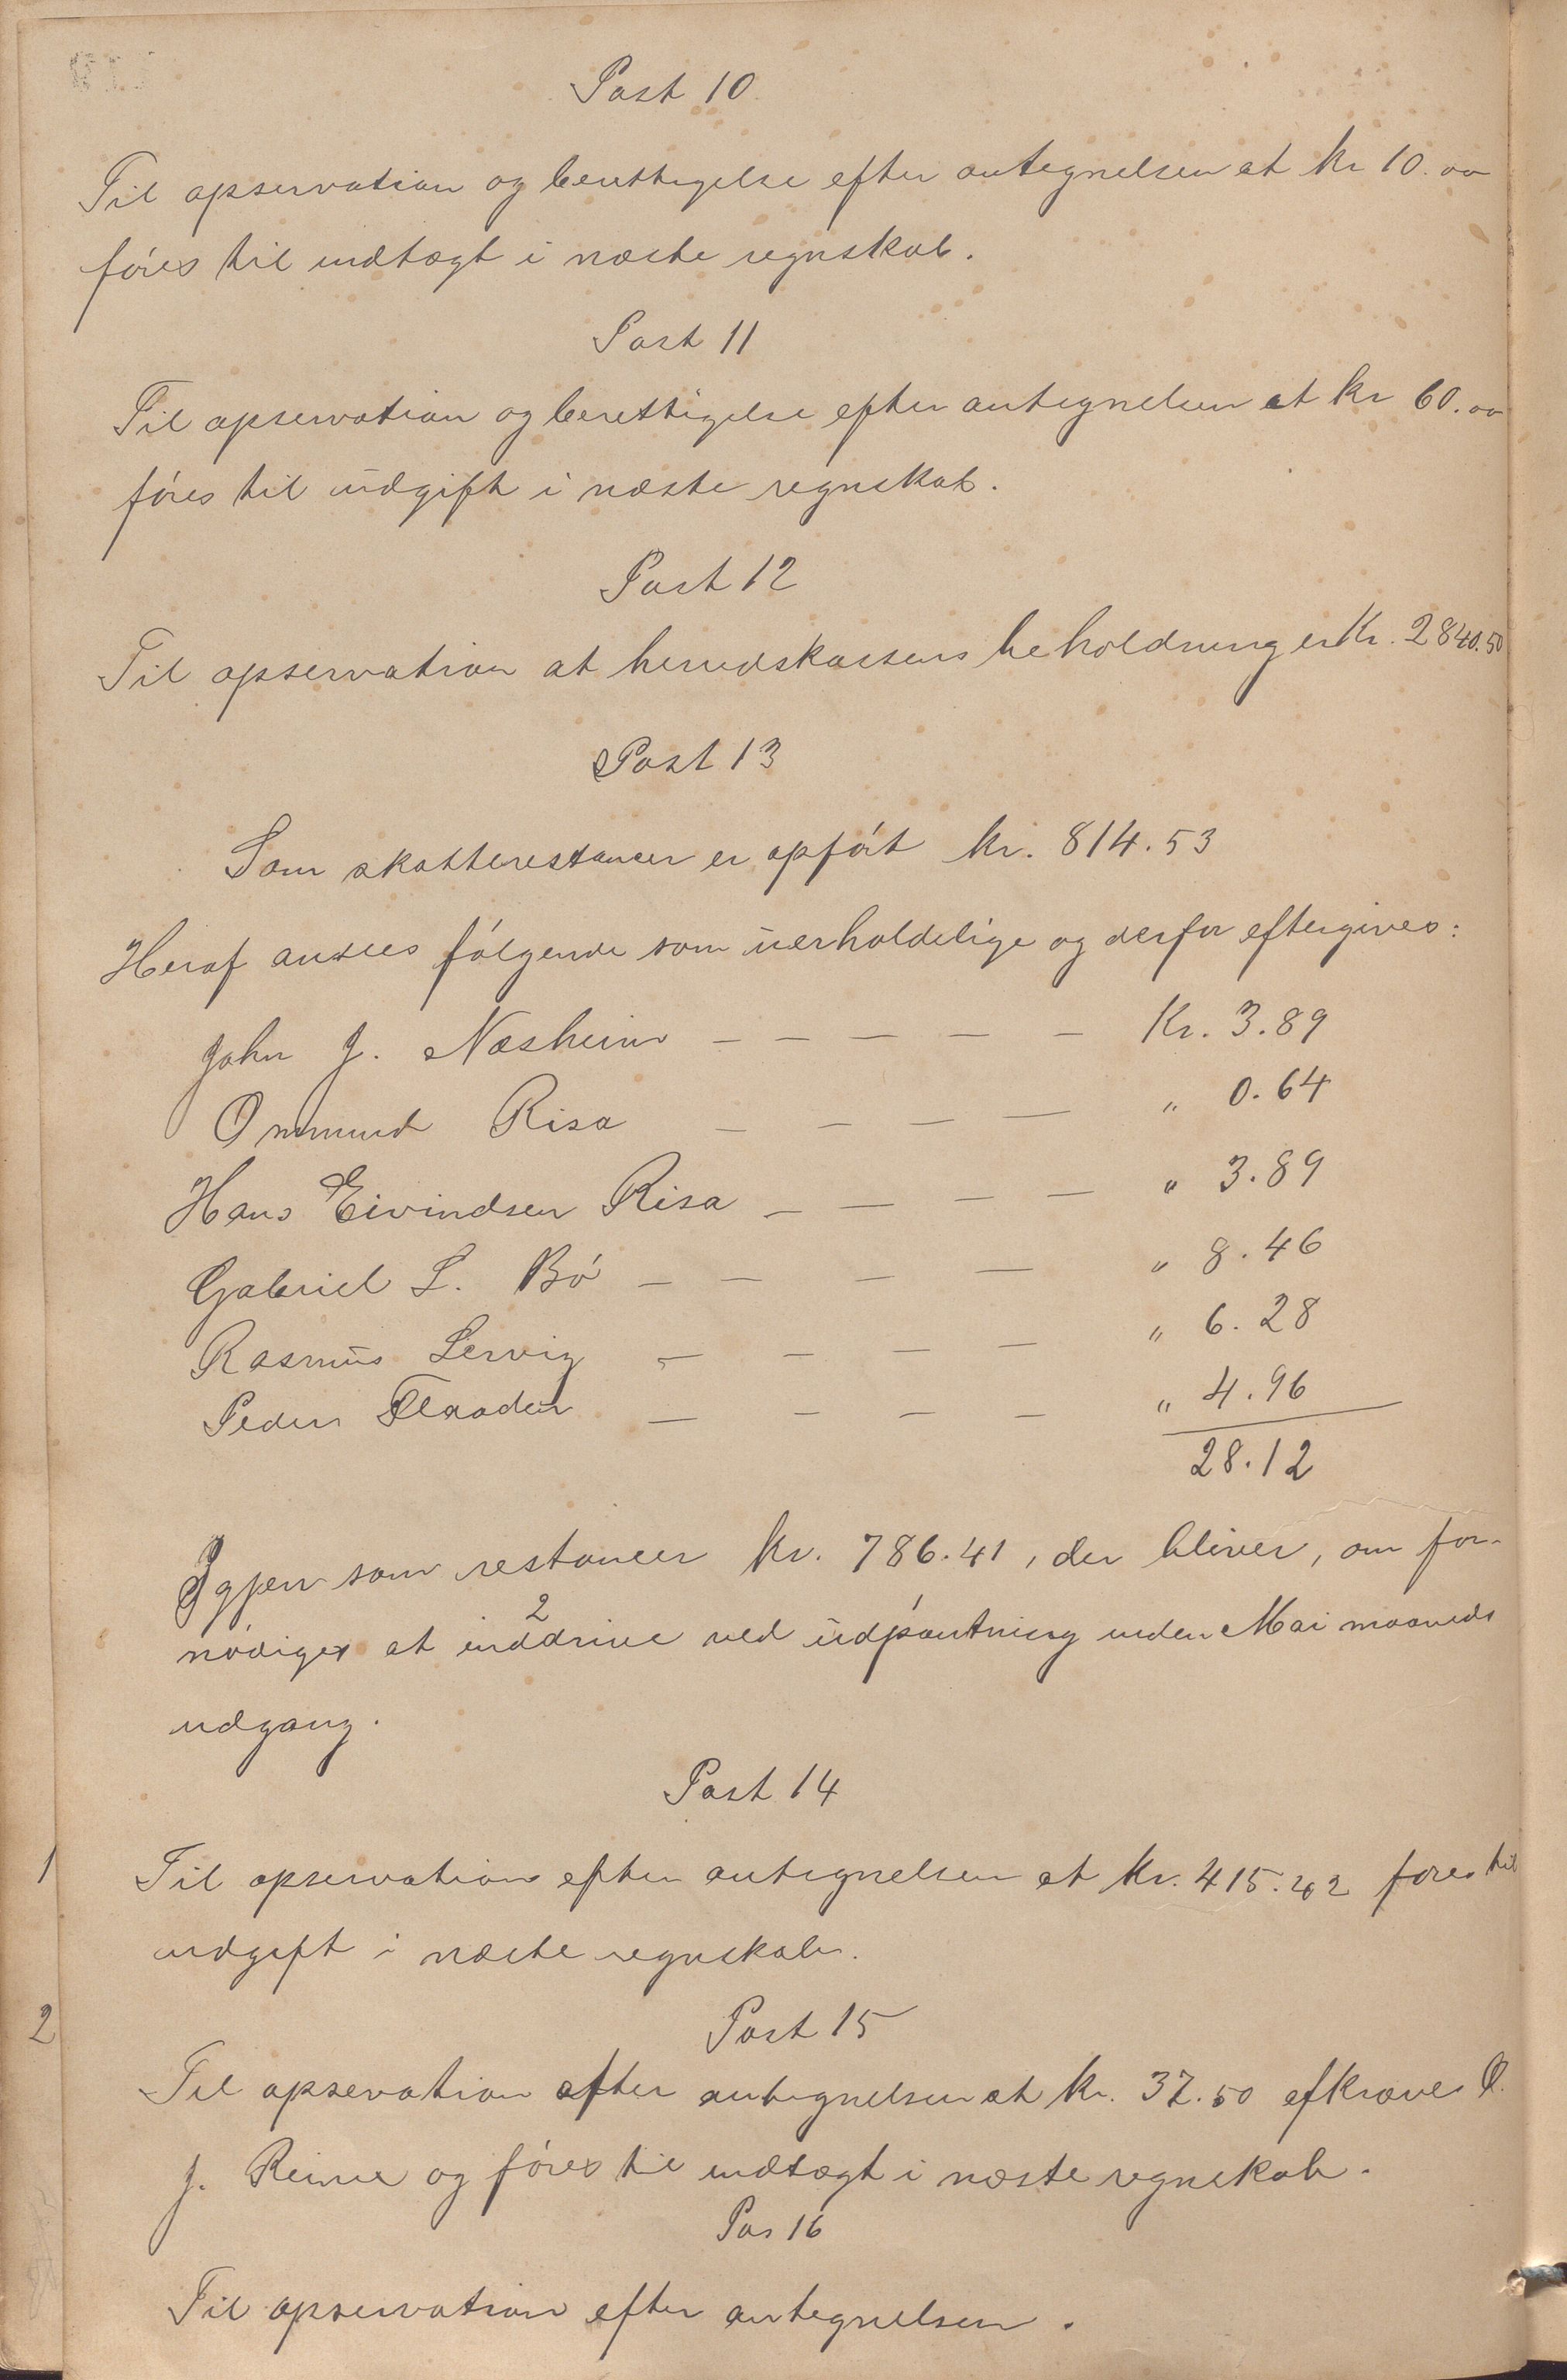 Post 10
Til opservation og berettigelse efter antegnelsen at kr 10.00
föres til indtægt i næste regnskab.
Post 11
Til opservation og berettigelse efter antegnelsen at kr 60.00
föres til udgift i næste regnskab.
Post 12
Til opservation at herredskassens beholdning er Kr. 2840.50
Post 13
Som skatterestancer er opfört kr. 814.53
Heraf ansees fölgende som uerholdelige og derfor eftergives:
John J. Næsheim — — — — — Kr. 3.89
Ommund Risa — — — — " 0.64
Hans Eivindsen Risa — — — — " 3.89
Gabriel L. Bö — — — — " 8.46
Rasmus Lervig — — — — " 6.28
Peder Flaaden — — — — " 4.96
28.12
Igjen som restancer kr. 786.41, der bliver, om for-
nödiges at inddrive ved udpantning inden Mai maaneds
udgang.
Post 14
1 Til opservation efter antegnelsen at kr. 415.42 föres til
udgift i næste regnskab.
2 Post 15
Til opsevation efter antegnelsen at kr. 37.50 afkræves O.
J. Reime og föres til indtægt i næste regnskab.
Pos 16
Til opservation efter antegnelsen.